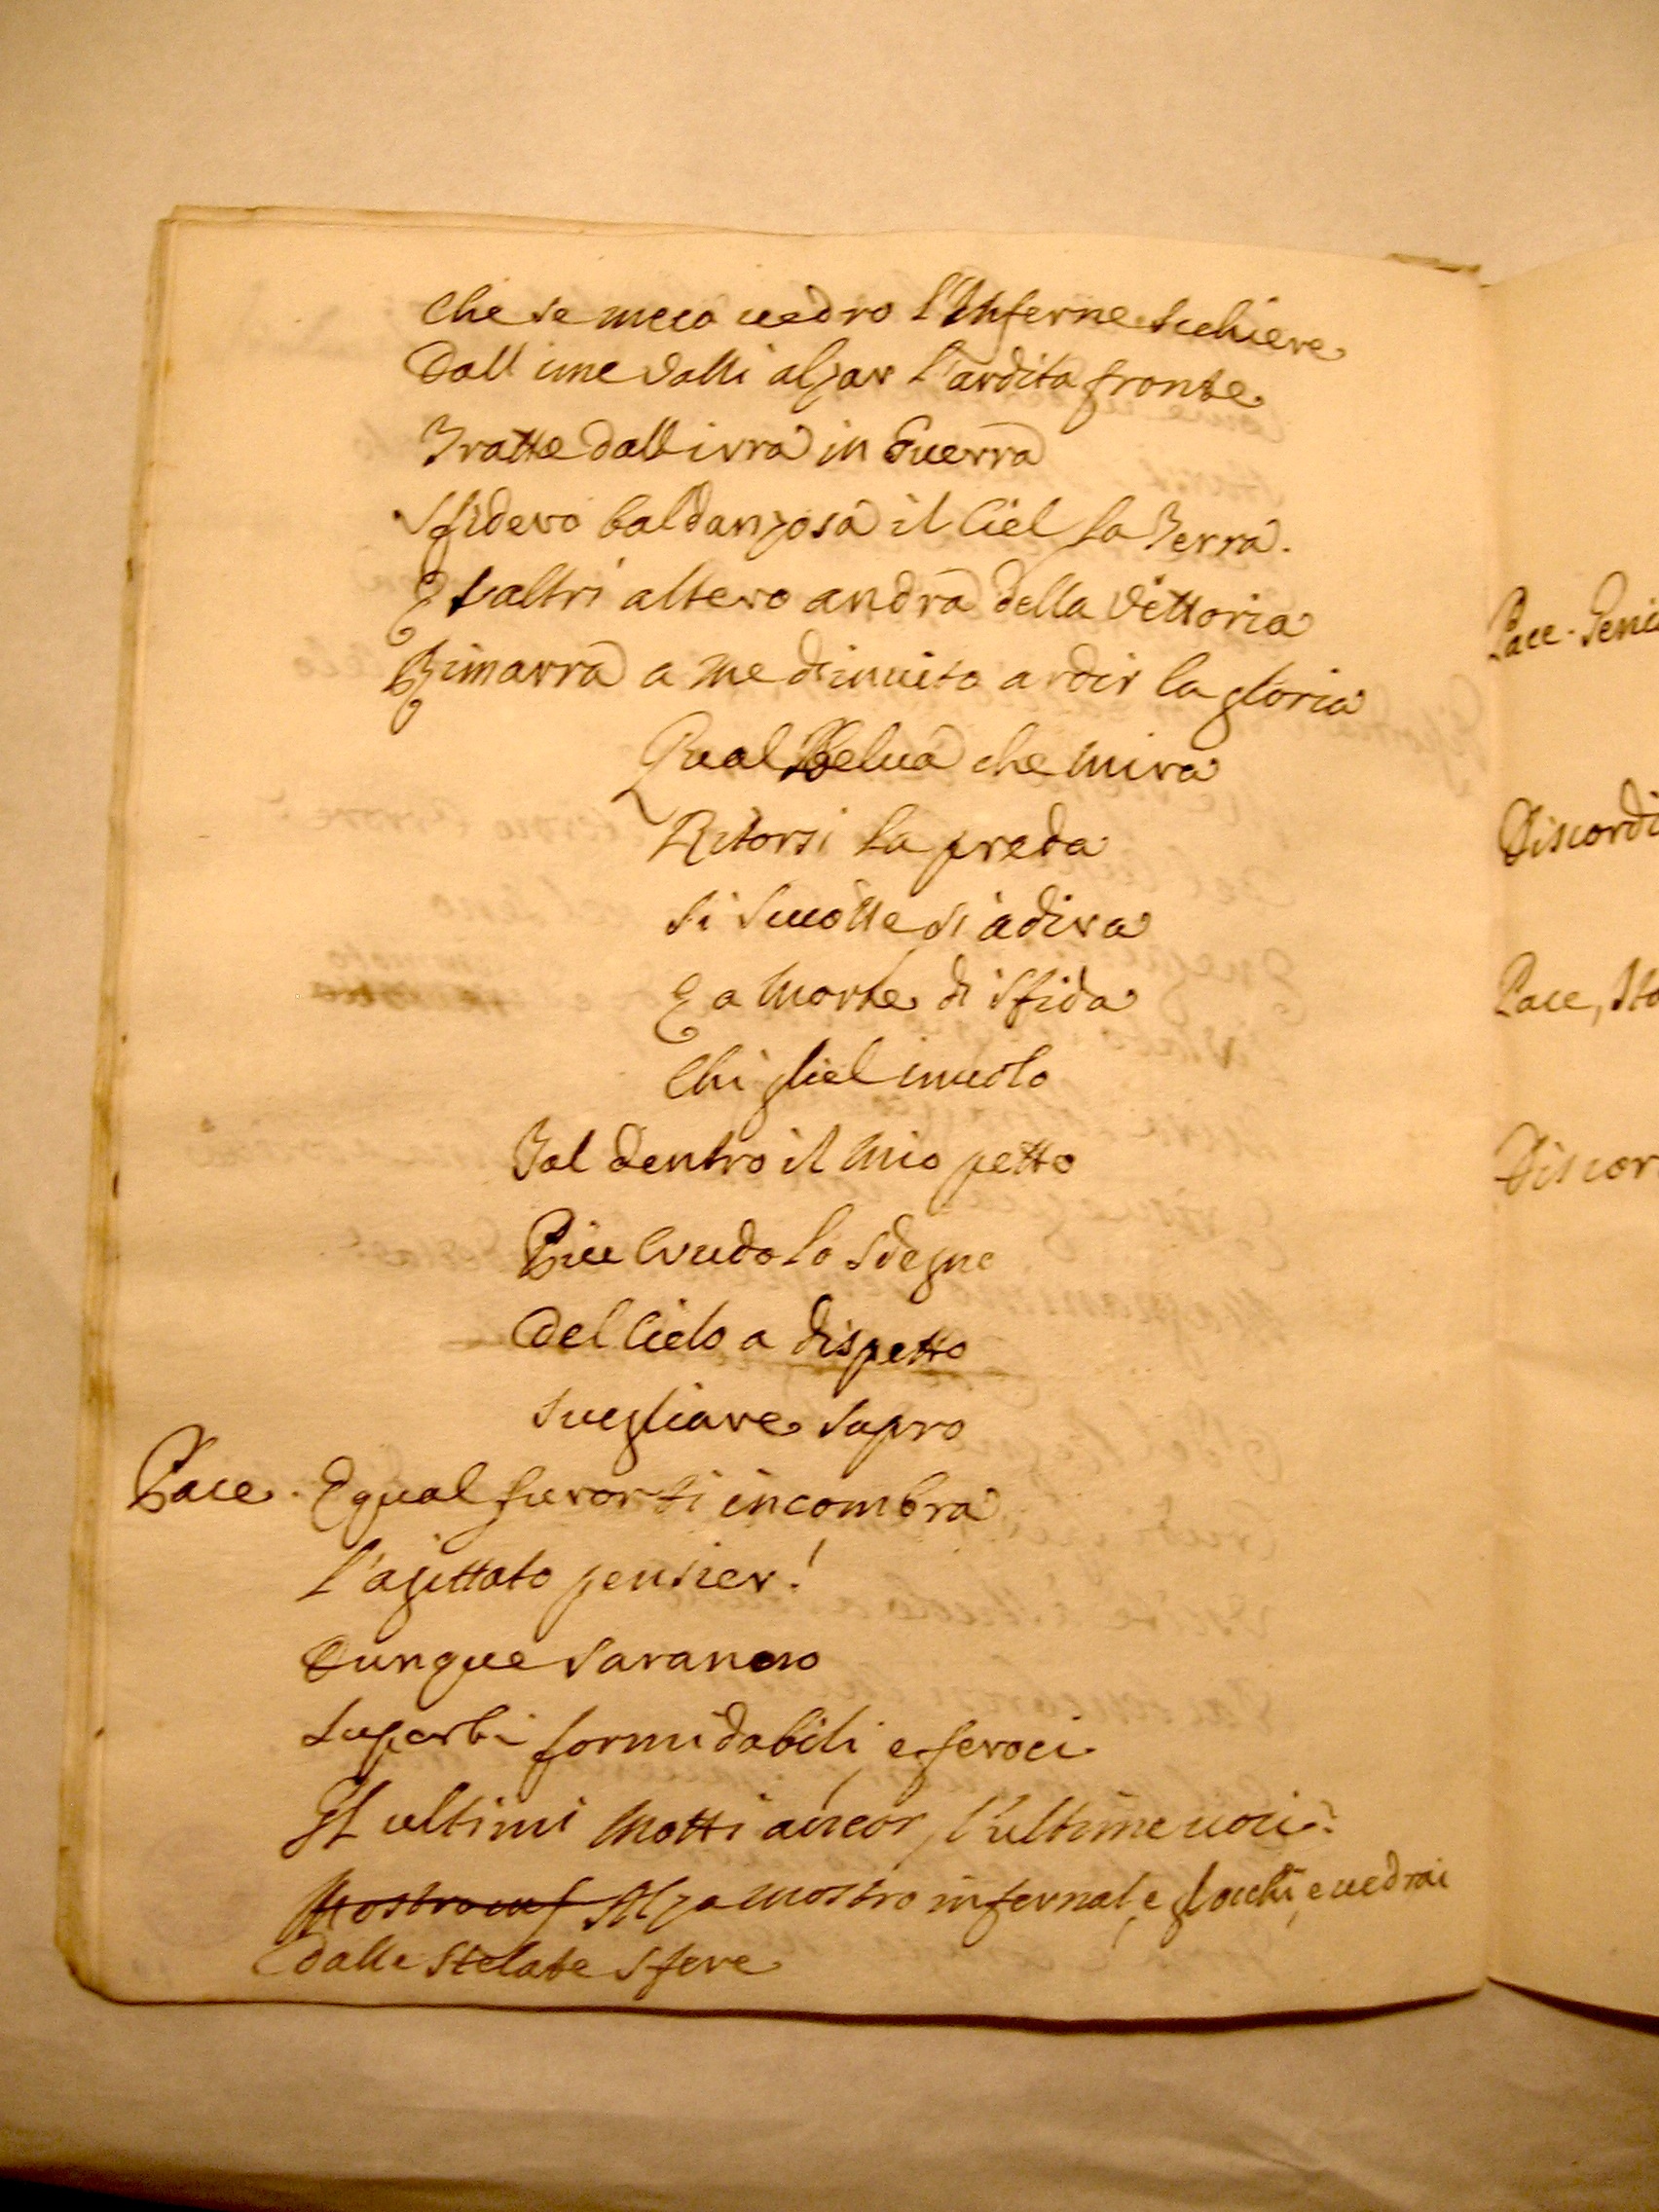 Che se meco uedro l'Inferne schiere
Dall ime Valli alzar l'ardita fronte
Tratte dall irra in Guerra
Sfidero baldanzosa il Ciel la Terra.
E s'altri altero andrà della Vittoria
Rimarrà a me d'inuito ardir la gloria
Qual Belua che mira
Ritorsi la preda
Si scuotte si adira
E a morte di sfida
Chi gliel inuolo
Tal dentro il mio petto
Piu Crudo lo sdegno
Del Cielo a dispetto
Suegliare sapro
Pace. E qual furor ti incombra
l'agittato pensier!
Dunque saranno
Superbi formidabili e feroci
Gl ultimi motti ancor, l'ultime uoci?
Mostro inf Alza mostro infernal, e gl occhi, e uedrai
Dalle stelate sfere
Pace. Geni
Discordi
Pace,
Discor